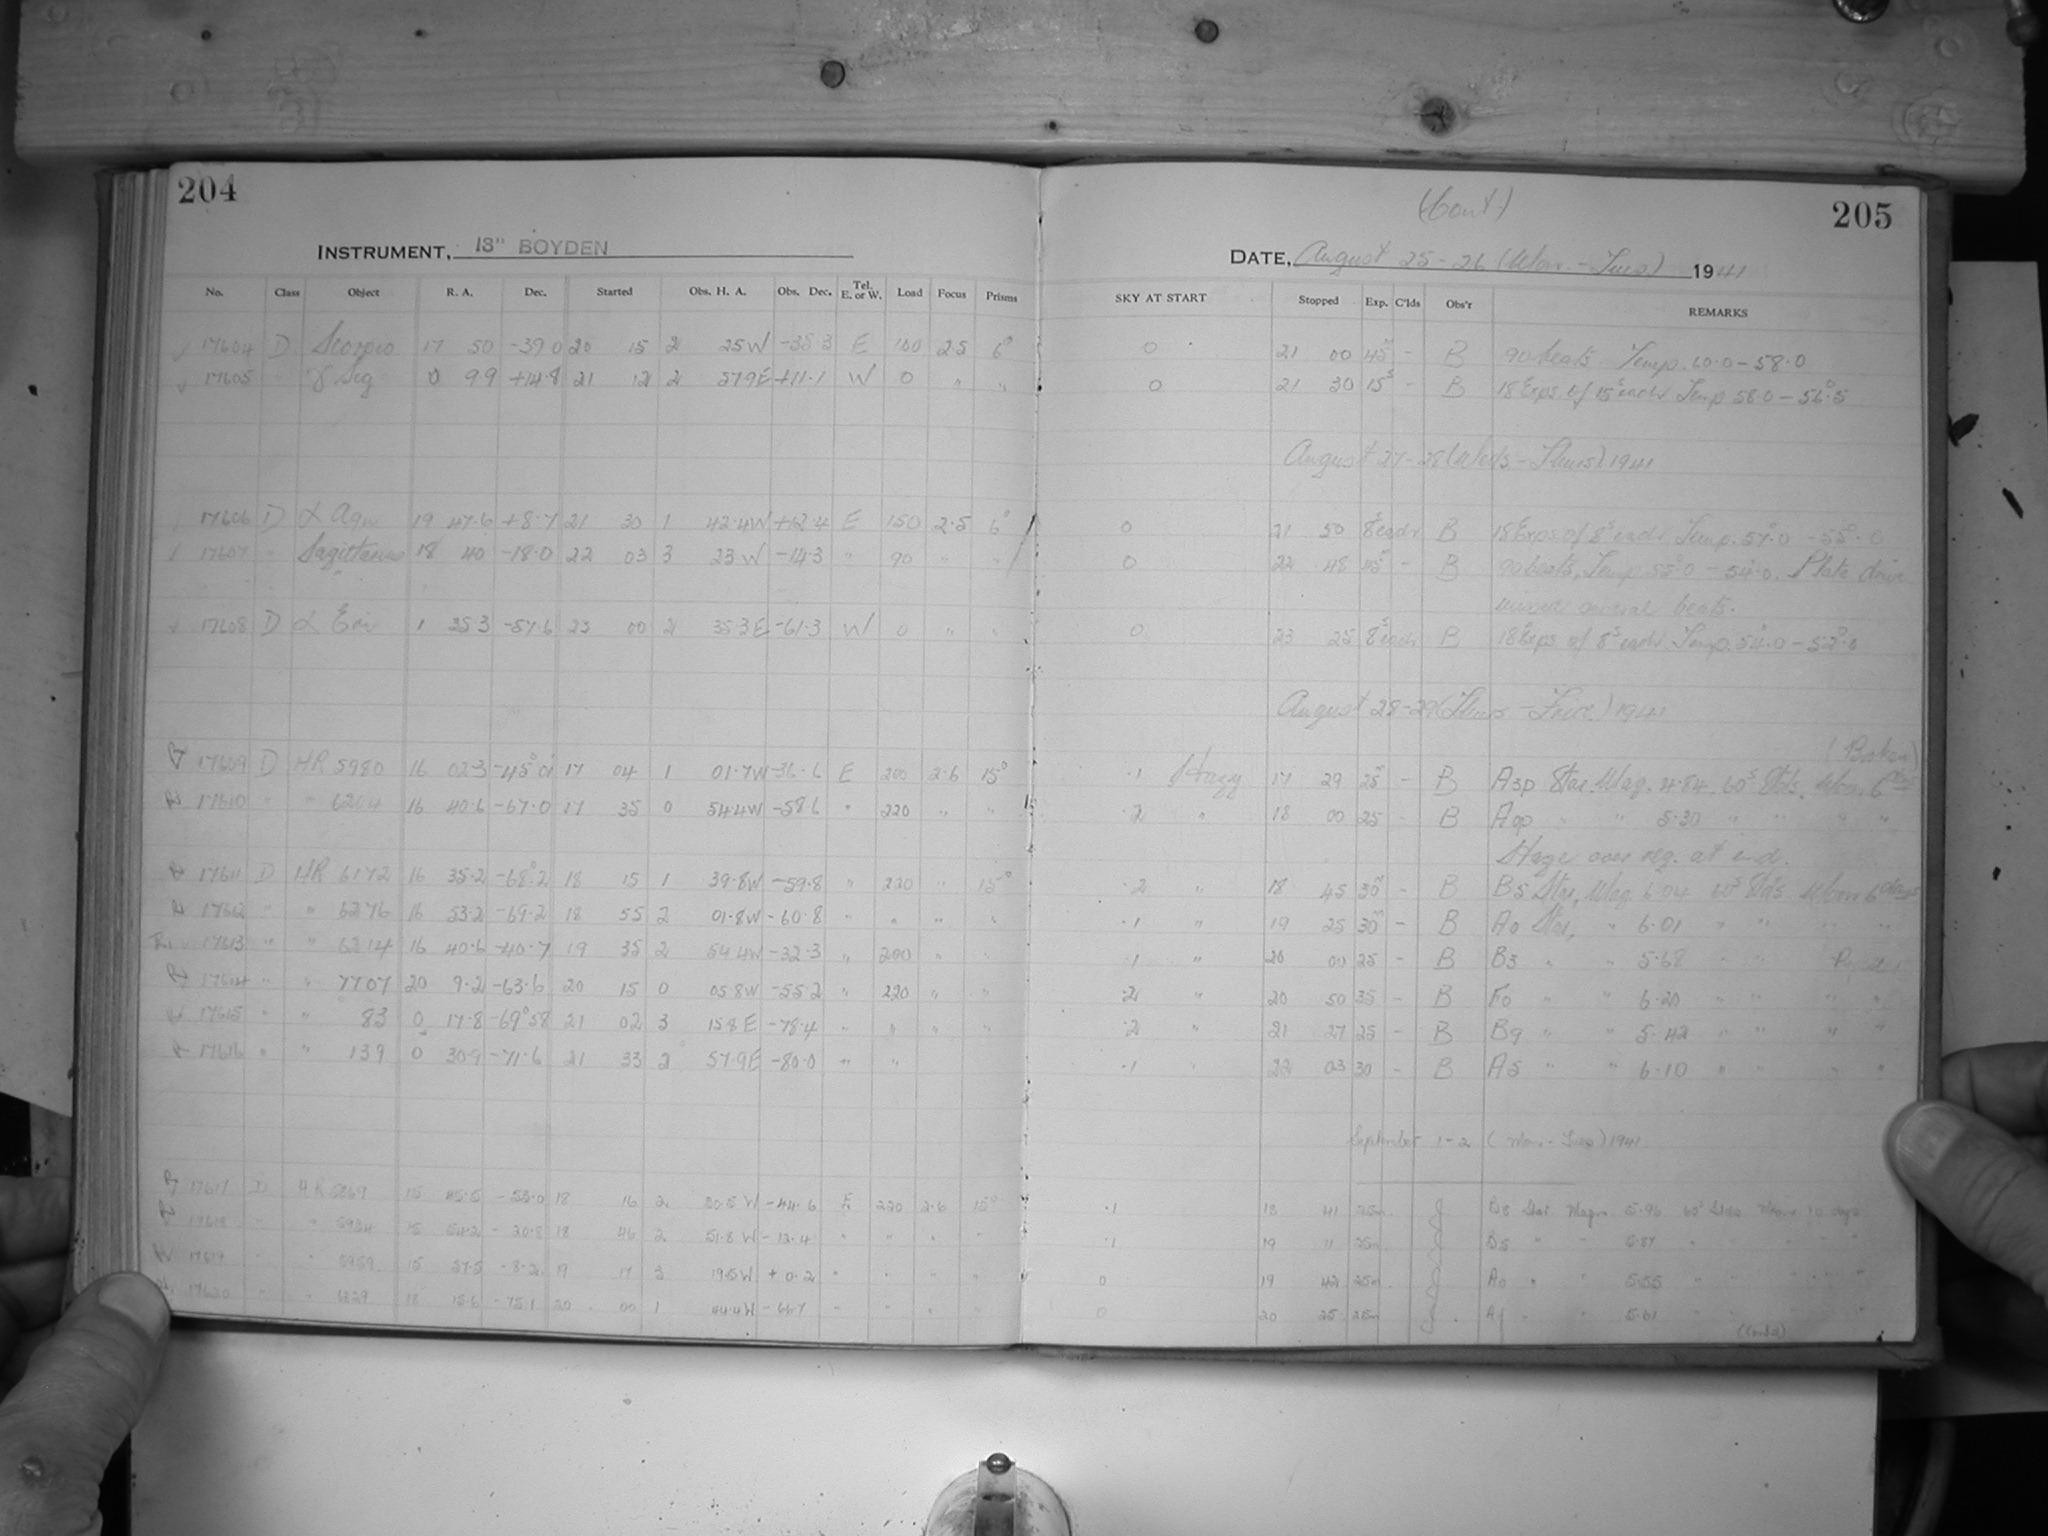 204
INSTRUMENT, 13" BOYDEN
No. Class Object R. A. Dec. Started Obs. H. A. Obs. Dec. Tel. E. or W. Load Focus Prisms
17604 D Scorpio 17 50 -39.0 20 15 2 25W -35.3 E 100 2.5 6°
17605 " γ Peg 0 9.9 +14.8 21 12 2 57.9E +11.1 W 0 " "
17606 D α Aqu 19 47.6 +8.7 21 30 1 42.4W +12.4 E 150 2.5 6°
17607 " Sagittarius 18 40 -18.0 22 03 3 23W -14.3 " 90 " "
17608 D α Eri 1 35.3 -57.6 23 00 2 35.3E -61.3 W 0 " "
17609 D HR 5980 16 02.3 -45°01 17 04 1 01.7W -36.6 E 200 2.6 15°
17610 " " 6204 16 40.6 -67.0 17 35 0 54.4W -58.6 " 220 " "
17611 D HR 6172 16 35.2 -68°.2 18 15 1 39.8W -59.8 " 220 " 15°
17612 " " 6276 16 53.2 -69.2 18 55 2 01.8W -60.8 " " " "
17613 " " 6214 16 40.6 -40.7 19 35 2 54.4W -32.3 " 200 " "
17614 " " 7707 20 9.2 -63.6 20 15 0 05.8W -55.2 " 220 " "
17615 " " 83 0 17.8 -69°58 21 02 3 15.8E -78.4 " " " "
17616 " " 139 0 30.9 -71.6 21 33 2 57.9E -80.0 " "
17617 D HR 5869 15 45.5 -53.0 18 16 2 00.5W -44.6 E 220 2.6 15°
17618 " " 5934 15 54.2 -20.8 18 46 2 51.8W -12.4 " " " "
17619 " " 5959 15 57.5 -8.2 19 17 3 19.5W +0.2 " " " "
17620 " " 6829 18 15.6 -75.1 20 00 1 44.4W -66.7 " " " "
(Cont.)
205
DATE, August 25-26 (Mon.-Tues) 1941
SKY AT START Stopped Exp. C'lds Obs'r REMARKS
0 21 00 45m - B 90 beats Temp. 60.0-58.0
0 21 30 15s - B 18 Exps. of 15s each Temp 58.0-56°.5
August 27-28 (Weds-Thurs) 1941
0 21 50 8s each B 18 Exps of 8s each Temp. 57.0-55°.0
0 22 48 45m - B 90 beats, Temp 55°.0-54.0. Plate drive
missed several beats.
0 23 25 8s each B 18 Exps of 8s each Temp. 54.0-52°.0
August 28-29 (Thurs-Frid.) 1941
(Broken)
.1 Hazy 17 29 25m - B A3p Star. Mag. 4.84. 60s Stds. Moon 6 days
.2 " 18 00 25 - B A0p " " 5.30 " " " "
Haze over reg. at end.
.2 " 18 45 30m - B B5 Star, Mag 6.04 60s Stds Moon 6 days
.1 " 19 25 30m - B A0 Star, " 6.01 " " " "
.1 " 20 00 25 - B B3 " " 5.68
.2 " 20 50 35 - B F0 " " 6.20 " " " "
.2 " 21 27 25 - B B9 " " 5.42 " " " "
.1 " 22 03 30 - B A5 " " 6.10 " " " "
September 1-2 (Mon-Tues) 1941
.1 18 41 25m J B8 Star Magn. 5.96 60s Stds Moon 10 days
.1 19 11 25m J B5 " " 5.87 " " " "
0 19 42 25m J A0 " " 5.55 " " " "
0 20 25 25m J " " 5.61 "
(Contd)